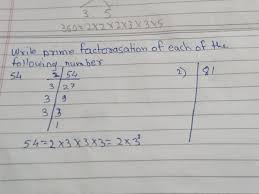 3 5
360 = 2 x 2 x 2 x 3 x 3 x 5
Write prime factorasation of each of the
following number
54 2 54 2) 81
3 27
3 9
3 3
1
54 = 2 x 3 x 3 x 3 = 2 x 3³